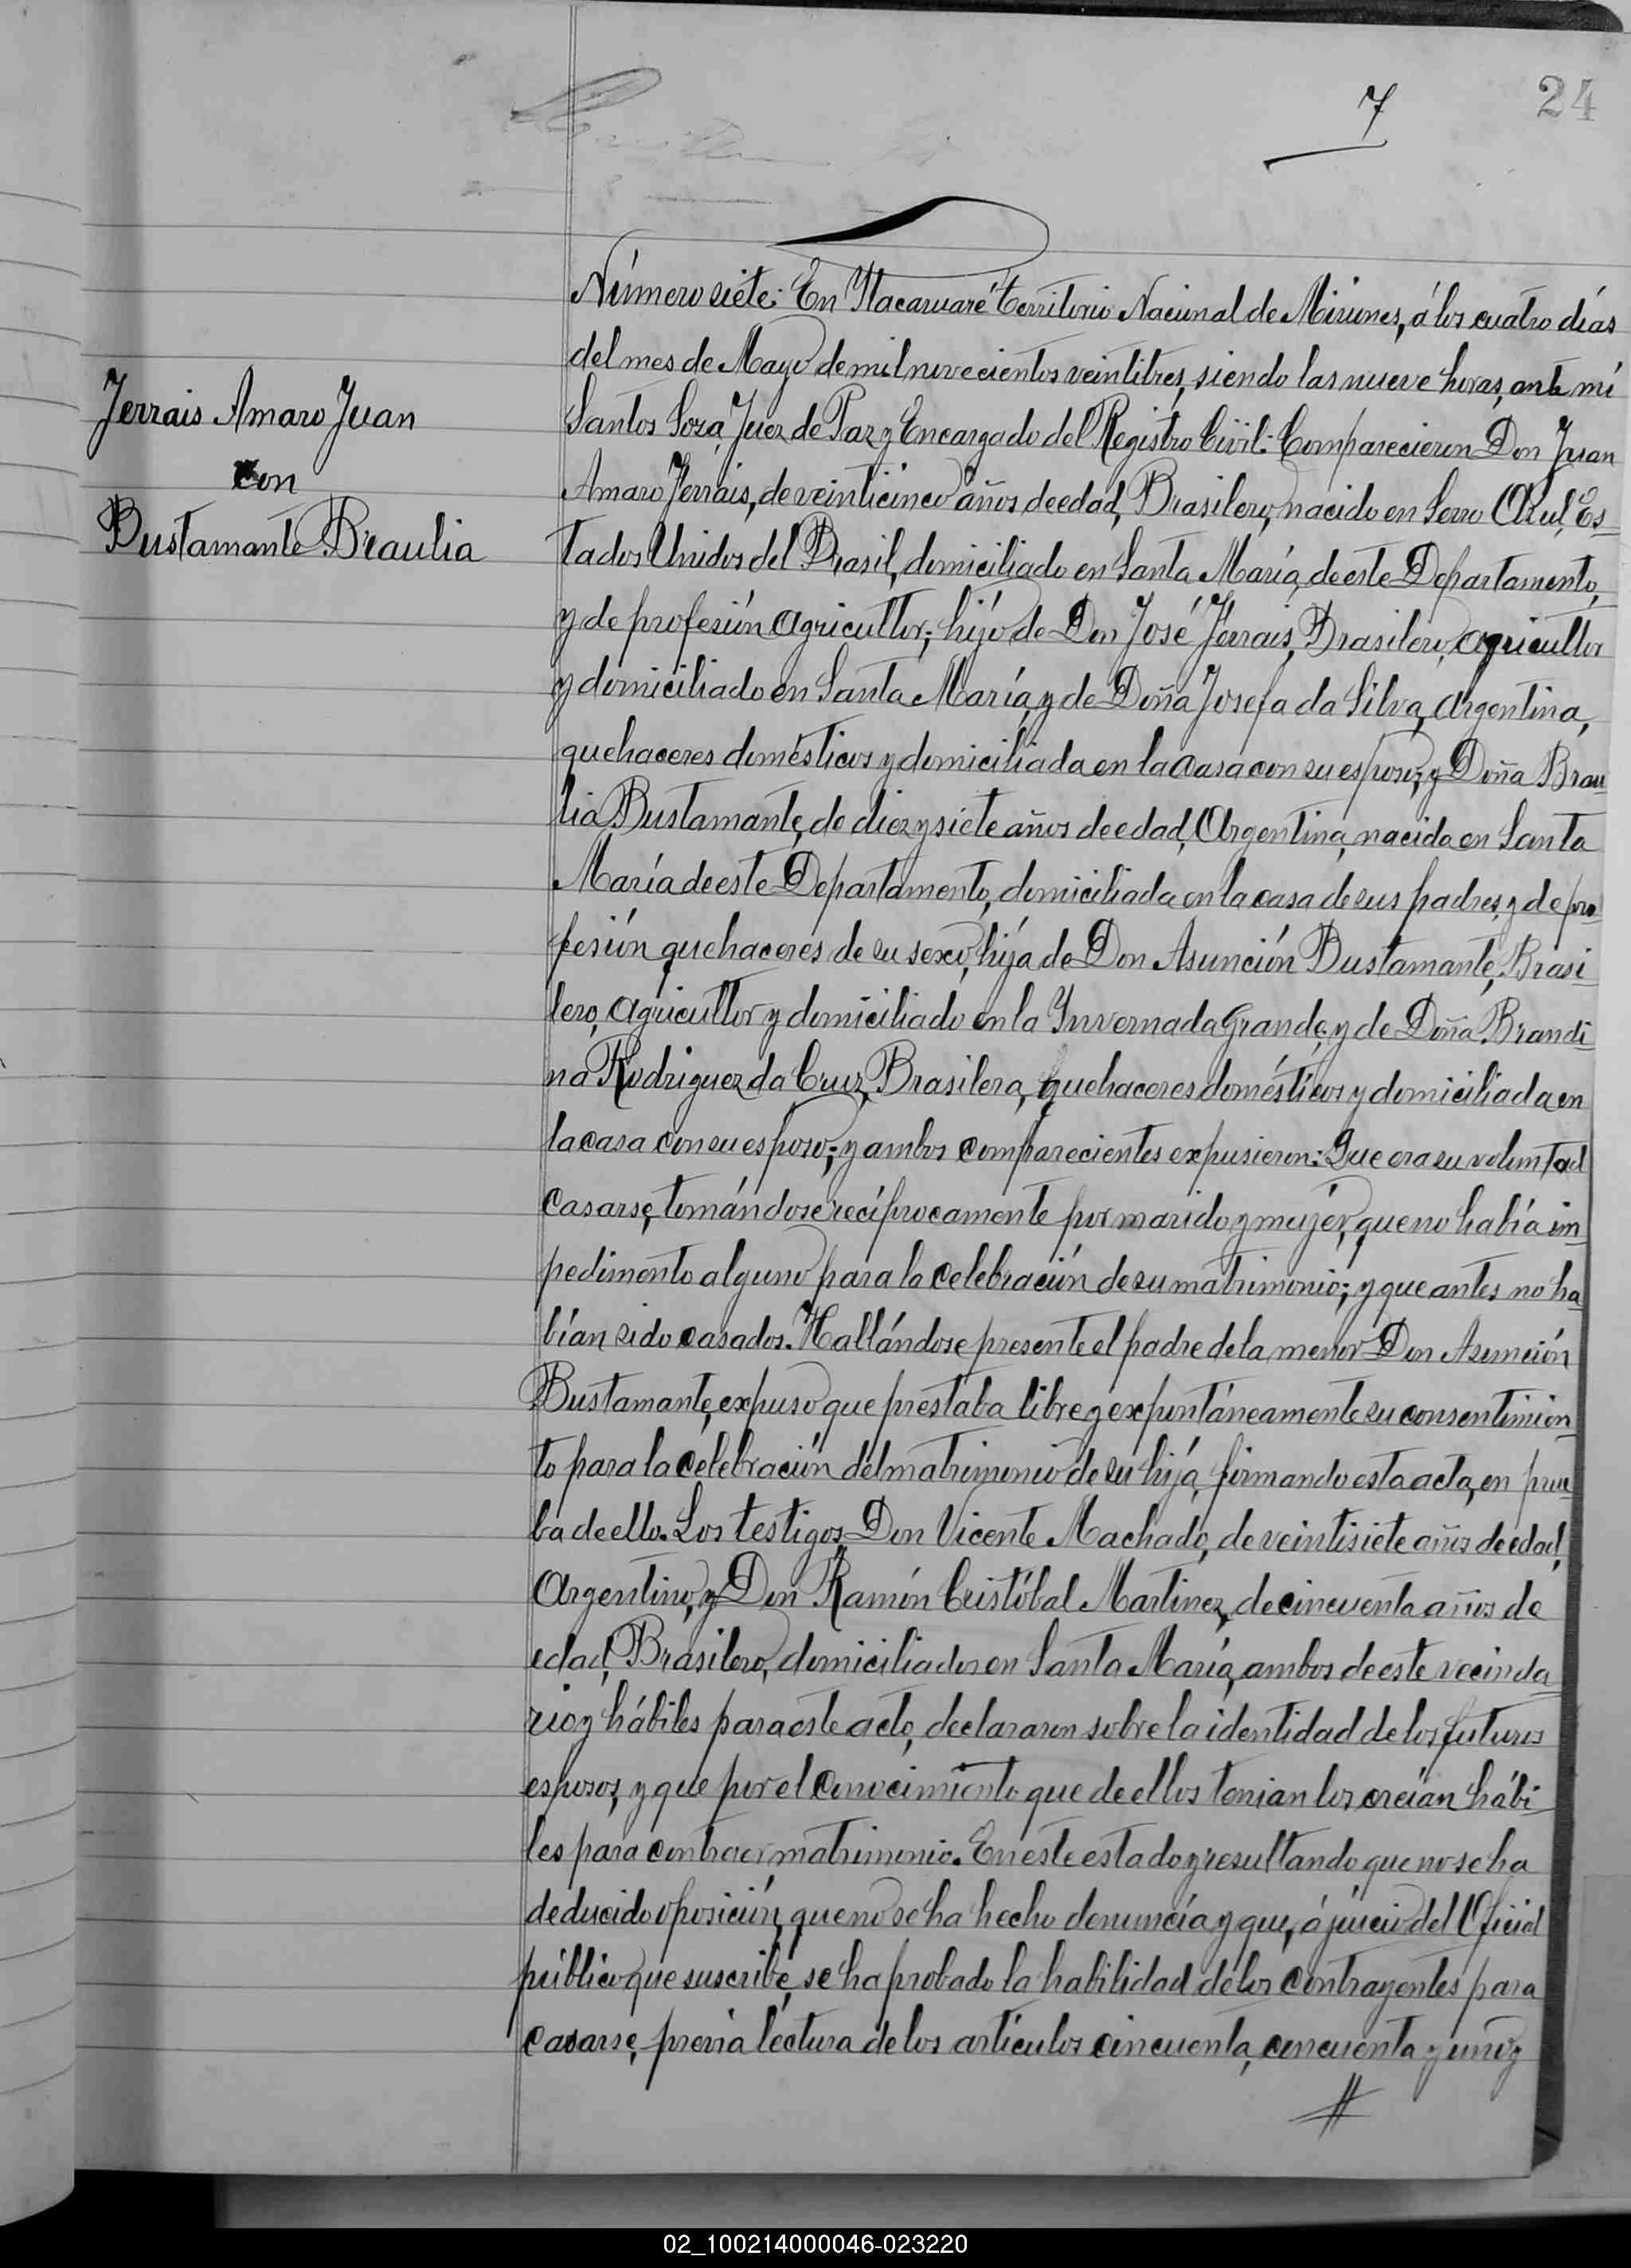 24
7
Número siete: En Ytacaruaré Territorio Nacional de Misiones, á los cuatro días
del mes de Mayo de mil novecientos veintitres, siendo las nueve horas, ante mí
Jerrais Amaro Juan
con
Bustamante Braulia
Santos Soza, Juez de Paz y Encargado del Registro Civil: Comparecieron Don Juan
Amaro Jerrais, de veinticinco años de edad, Brasilero, nacido en Serro Azul, Es-
tados Unidos del Brasil, domiciliado en Santa María, de este Departamento,
y de profesión agricultor; hijo de Don José Jerrais, Brasilero, agricultor
y domiciliado en Santa María, y de Doña Josefa da Silva, Argentina,
quehaceres domésticos y domiciliada en la casa con su esposo; y Doña Brau-
lia Bustamante, de diez y siete años de edad, Argentina, nacida en Santa
María de este Departamento, domiciliada en la casa de sus padres, y de pro-
fesión quehaceres de su sexo, hija de Don Asunción Bustamante, Brasi-
lero, agricultor y domiciliado en la Ynvernada Grande, y de Doña Brandi-
na Rodriguez da Cruz, Brasilera, quehaceres domésticos y domiciliada en
la casa con su esposo; y ambos comparecientes expusieron: Que era su voluntad
casarse, tomándose recíprocamente por marido y mujer, que no había im-
pedimento alguno para la celebración de su matrimonio; y que antes no ha-
bían sido casados. Hallándose presente el padre de la menor Don Asunción
Bustamante, expuso que prestaba libre y expontáneamente su consentimien-
to para la celebración del matrimonio de su hija, firmando esta acta, en prue-
ba de ello. Los testigos, Don Vicente Machado, de veintisiete años de edad,
Argentino, y Don Ramón Cristóbal Martinez, de cincuenta años de
edad, Brasilero, domiciliados en Santa María, ambos de este vecinda-
rio y hábiles para este acto, declararon sobre la identidad de los futuros
esposos, y que por el conocimiento que de ellos tenian los creían hábi-
les para contraer matrimonio. En este estado y resultando que no se ha
deducido oposición, que no se ha hecho denuncía y que, á juicio del Oficial
público que suscribe, se ha probado la habilidad de los contrayentes para
casarse, previa lectura de los artículos cincuenta, cincuenta y uno y
02_100214000046-023220